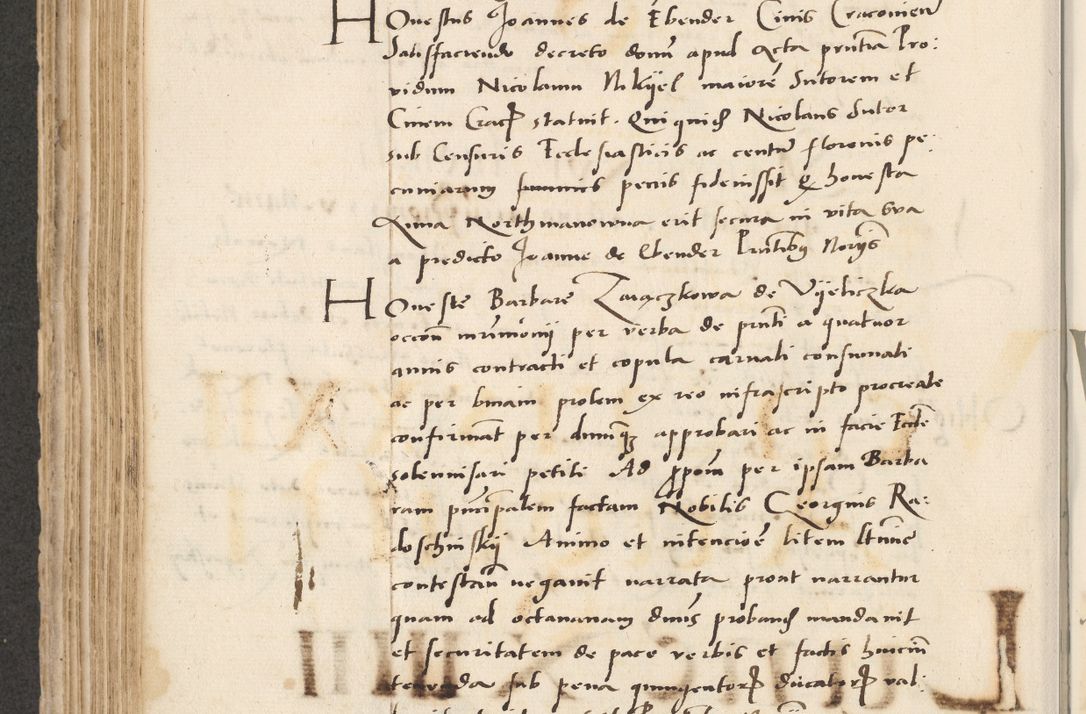 Honestus Joannes de Ebender Civis Cracovien
Satisfaciendo decreto domi apud Acta pnтia Pro:
vidum Nicolaum Nikyel maiore Sutorem et
Civem Crac statuit. Qui quid Nicolaus Sutor
sub Censuris Ecclesiasticis ac centu florenis pe:
cuniarum penis fideiussit q honesta
Anna Northmanowna erit secura in vita sua
a predicto Joanne de Ebender Pntibus
Honeste Barbare Zaiączkowa de Vyeliczka
mrimonij per verba de pnti a quatuor
annis contracti et copula carnali consumati
ac per binam prolem ex reo infrascripto procreate
confirmat per approbari ac in facie Eccle
solennisari petiti Ad ppom per ipsam Barba
ram pncipalem factam Nobilis Georgius Ra:
doschinskij Animo et intencioe litem
contestan negavit narrata prout narrantur
quam ad octavanam proband mandavit
et securitatem de pace verbis et factis
tenenda sub pena quingentor ducator val: